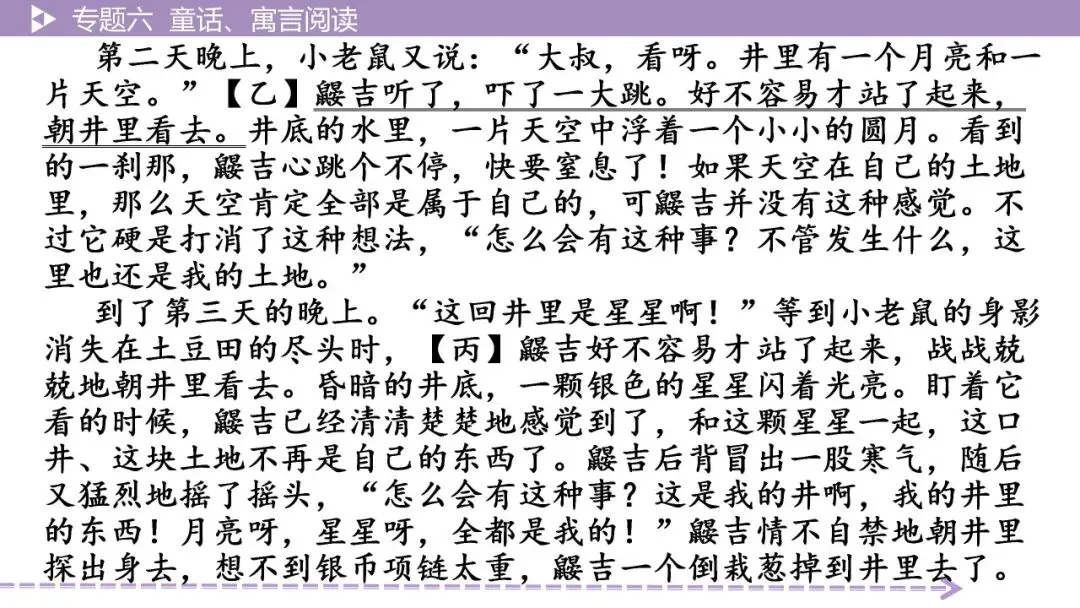 专题六 童话、寓言阅读
第二天晚上，小老鼠又说：“大叔，看呀。井里有一个月亮和一
片天空。”【乙】鼹吉听了，吓了一大跳。好不容易才站了起来，
朝井里看去。井底的水里，一片天空中浮着一个小小的圆月。看到
的一刹那，鼹吉心跳个不停，快要窒息了！如果天空在自己的土地
里，那么天空肯定全部是属于自己的，可鼹吉并没有这种感觉。不
过它硬是打消了这种想法，“怎么会有这种事？不管发生什么，这
里也还是我的土地。”
到了第三天的晚上。“这回井里是星星啊！”等到小老鼠的身影
消失在土豆田的尽头时，【丙】鼹吉好不容易才站了起来，战战兢
兢地朝井里看去。昏暗的井底，一颗银色的星星闪着光亮。盯着它
看的时候，鼹吉已经清清楚楚地感觉到了，和这颗星星一起，这口
井、这块土地不再是自己的东西了。鼹吉后背冒出一股寒气，随后
又猛烈地摇了摇头，“怎么会有这种事？这是我的井啊，我的井里
的东西！月亮呀，星星呀，全都是我的！”鼹吉情不自禁地朝井里
探出身去，想不到银币项链太重，鼹吉一个倒栽葱掉到井里去了。